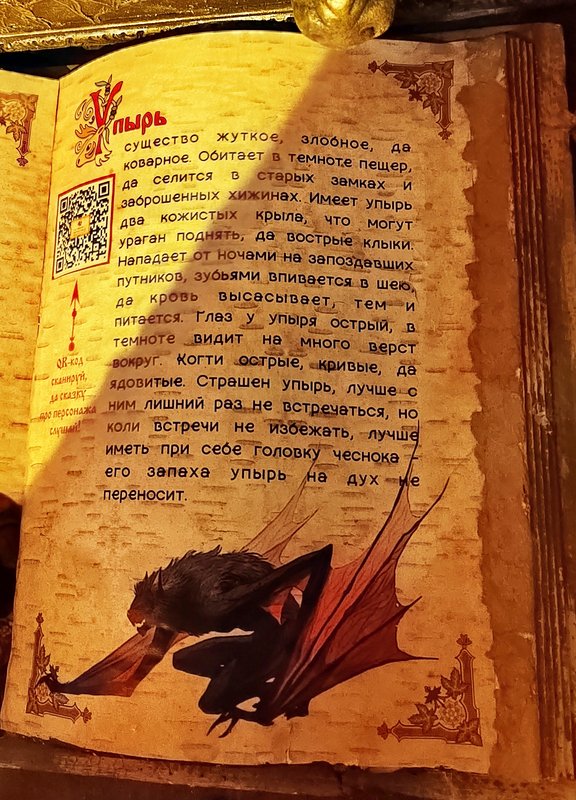 Упырь
существо жуткое, злобное, да
коварное. Обитает в темноте пещер,
да селится в старых замках и
заброшенных хижинах. Имеет упырь
два кожистых крыла, что могут
ураган поднять, да вострые клыки.
Нападает от ночами на запоздавших
путников, зубьями впивается в шею,
да кровь высасывает, тем и
питается. Глаз у упыря острый, в
темноте видит на много верст
вокруг. Когти острые, кривые, да
ядовитые. Страшен упырь, лучше с
ним лишний раз не встречаться, но
коли встречи не избежать, лучше
иметь при себе головку чеснока –
его запаха упырь на дух не
переносит.
QR-код
сканируй,
да сказку
про персонажа
слушай!